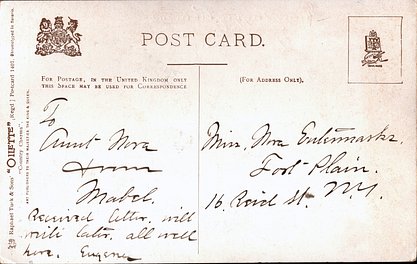 POST CARD.
FOR POSTAGE, IN THE UNITED KINGDOM ONLY
THIS SPACE MAY BE USED FOR CORRESPONDENCE
(FOR ADDRESS ONLY).
To
Aunt Nora
from
Mabel.
Received letter, will
write later, all well
here. Eugene
Miss. Nora
Fort Plain.
16. Reid St. N.Y.
Raphael Tuck & Sons' "OILETTE" (Regd.) Postcard